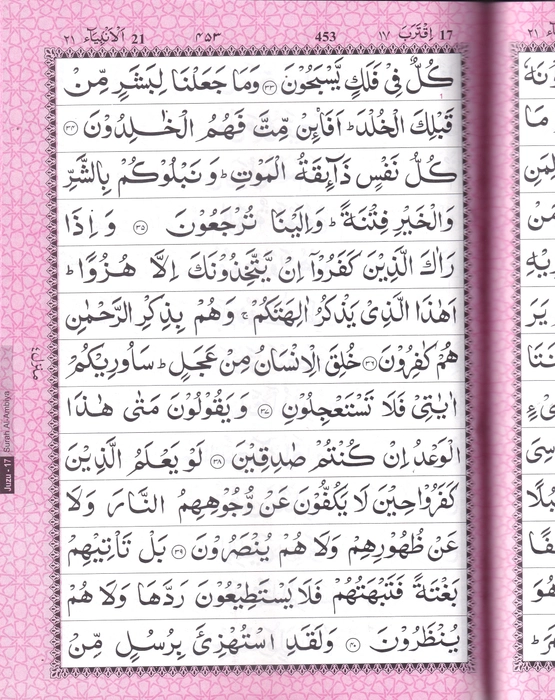 17 اِقْتَرَبَ ١٧
453
٤٥٣
21 اَلْاَنْۢبِيَآء ٢١
كُلٌّ فِىْ فَلَكٍ يَّسْبَحُوْنَ ﴿٣٣﴾ وَمَا جَعَلْنَا لِبَشَرٍ مِّنْ
قَبْلِكَ الْخُلْدَ ؕ اَفَا۟ئِنْ مِّتَّ فَهُمُ الْخٰلِدُوْنَ ﴿٣٤﴾
كُلُّ نَفْسٍ ذَآئِقَةُ الْمَوْتِ ؕ وَنَبْلُوْكُمْ بِالشَّرِّ
وَالْخَيْرِ فِتْنَةً ؕ وَاِلَيْنَا تُرْجَعُوْنَ ﴿٣٥﴾ وَاِذَا
رَاٰكَ الَّذِيْنَ كَفَرُوْۤا اِنْ يَّتَّخِذُوْنَكَ اِلَّا هُزُوًا ؕ
اَهٰذَا الَّذِىْ يَذْكُرُ اٰلِهَتَكُمْ ۚ وَهُمْ بِذِكْرِ الرَّحْمٰنِ
هُمْ كٰفِرُوْنَ ﴿٣٦﴾ خُلِقَ الْاِنْسَانُ مِنْ عَجَلٍ ؕ سَاُورِيْكُمْ
اٰيٰتِىْ فَلَا تَسْتَعْجِلُوْنِ ﴿٣٧﴾ وَيَقُوْلُوْنَ مَتٰى هٰذَا
الْوَعْدُ اِنْ كُنْتُمْ صٰدِقِيْنَ ﴿٣٨﴾ لَوْ يَعْلَمُ الَّذِيْنَ
كَفَرُوْا حِيْنَ لَا يَكُفُّوْنَ عَنْ وُّجُوْهِهِمُ النَّارَ وَلَا
عَنْ ظُهُوْرِهِمْ وَلَا هُمْ يُنْصَرُوْنَ ﴿٣٩﴾ بَلْ تَاْتِيْهِمْ
بَغْتَةً فَتَبْهَتُهُمْ فَلَا يَسْتَطِيْعُوْنَ رَدَّهَا وَلَا هُمْ
يُنْظَرُوْنَ ﴿٤٠﴾ وَلَقَدِ اسْتُهْزِئَ بِرُسُلٍ مِّنْ
Juzu - 17 Surah Al-Ambiya